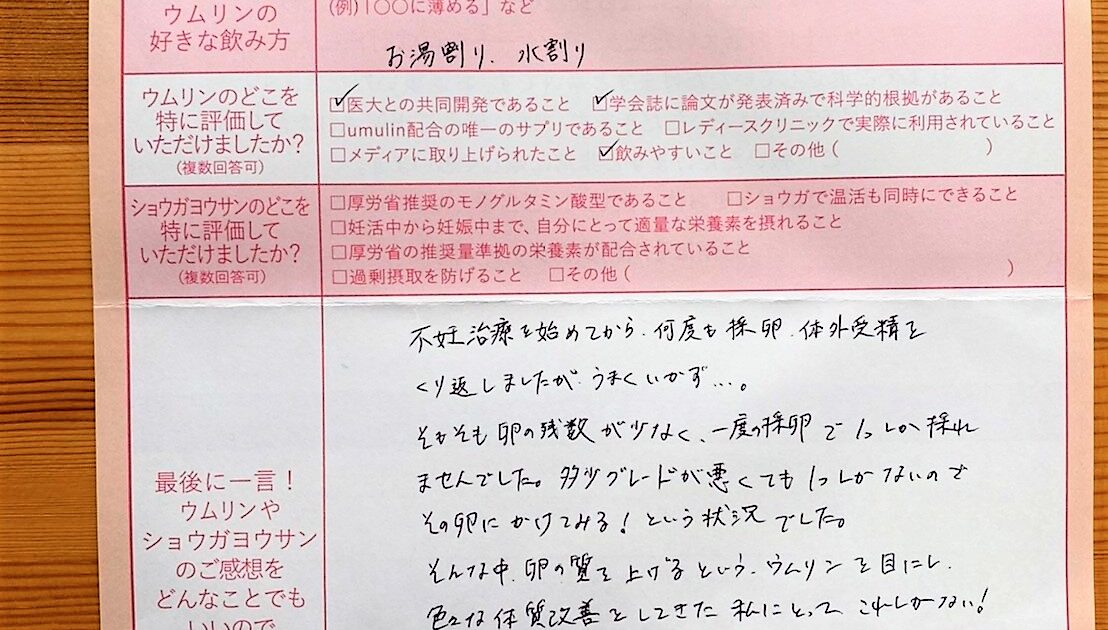 ウムリンの
好きな飲み方
(例)「〇〇に薄める」など
お湯割り、水割り
ウムリンのどこを
特に評価して
いただけましたか?
(複数回答可)
☑医大との共同開発であること ☑学会誌に論文が発表済みで科学的根拠があること
□umulin配合の唯一のサプリであること □レディースクリニックで実際に利用されていること
□メディアに取り上げられたこと ☑飲みやすいこと □その他( )
ショウガヨウサンのどこを
特に評価して
いただけましたか?
(複数回答可)
□厚労省推奨のモノグルタミン酸型であること □ショウガで温活も同時にできること
□妊活中から妊娠中まで、自分にとって適量な栄養素を摂れること
□厚労省の推奨量準拠の栄養素が配合されていること
□過剰摂取を防げること □その他( )
最後に一言!
ウムリンや
ショウガヨウサン
のご感想を
どんなことでも
いいので
不妊治療を始めてから、何度も採卵、体外受精を
くり返しましたが、うまくいかず…。
そもそも卵の残数が少なく、一度の採卵で1つしか採れ
ませんでした。多少グレードが悪くても1つしかないので
その卵にかけてみる!という状況でした。
そんな中、卵の質を上げるという、ウムリンを目にし、
色々な体質改善をしてきた私にとって、これしかない!